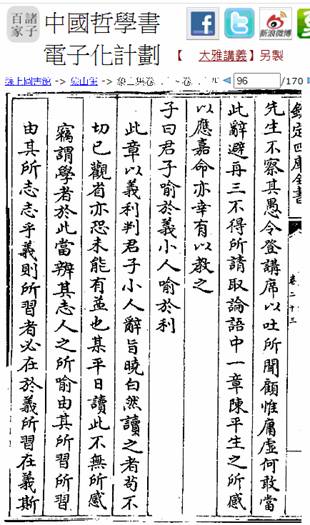 諸子百家
中國哲學書電子化計劃
【 大雅講義】另製
新浪微博
線上圖書館 -> 象山集 -> 象山集卷
96 /170
欽定四庫全書
卷二十三
先生不察其愚令登講席以吐所聞顧惟庸虛何敢當
此辭避再三不得所請取論語中一章陳平生之所感
以應嘉命亦幸有以教之
子曰君子喻於義小人喻於利
此章以義利判君子小人辭旨曉白然讀之者苟不
切己觀省亦恐未能有益也某平日讀此不無所感
竊謂學者於此當辨其志人之所喻由其所習所習
由其所志志乎義則所習者必在於義所習在義斯